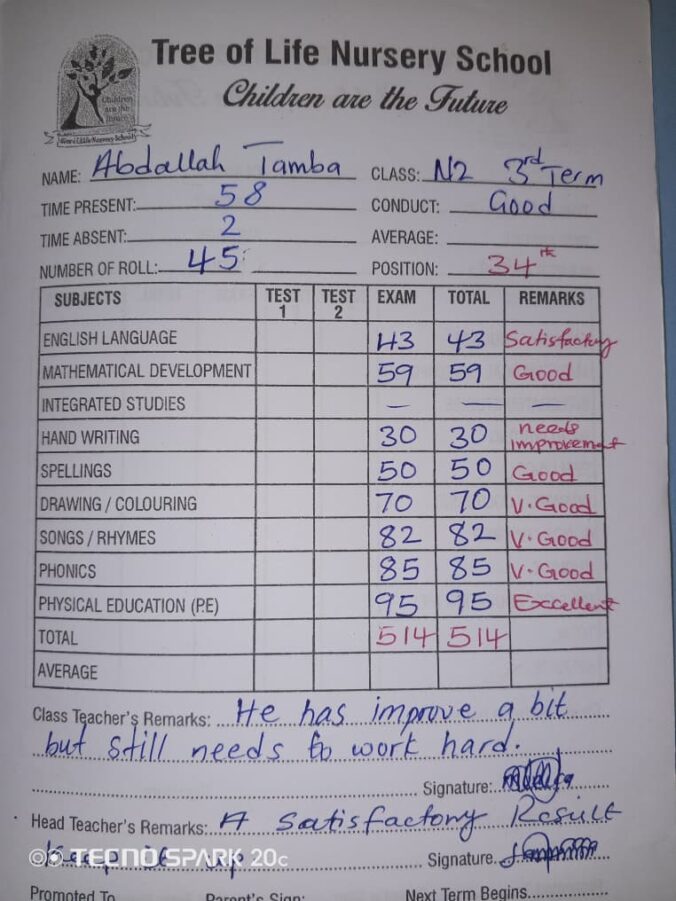 Tree of Life Nursery School
Children are the Future
Children
are the
future
NAME: Abdallah Tamba CLASS: N2 3rd Term
TIME PRESENT: 58 CONDUCT: Good
TIME ABSENT: 2 AVERAGE:
NUMBER OF ROLL: 45 POSITION: 34th
SUBJECTS TEST 1 TEST 2 EXAM TOTAL REMARKS
ENGLISH LANGUAGE 43 43 Satisfactory
MATHEMATICAL DEVELOPMENT 59 59 Good
INTEGRATED STUDIES — — —
HAND WRITING 30 30 needs improvement
SPELLINGS 50 50 Good
DRAWING / COLOURING 70 70 V. Good
SONGS / RHYMES 82 82 V. Good
PHONICS 85 85 V. Good
PHYSICAL EDUCATION (PE) 95 95 Excellent
TOTAL 514 514
AVERAGE
Class Teacher's Remarks: He has improve a bit
but still needs to work hard.
Signature:
Head Teacher's Remarks: A Satisfactory Result
Keep it up Signature.
TECNO SPARK 20c
Promoted To Parent's Sign: Next Term Begins